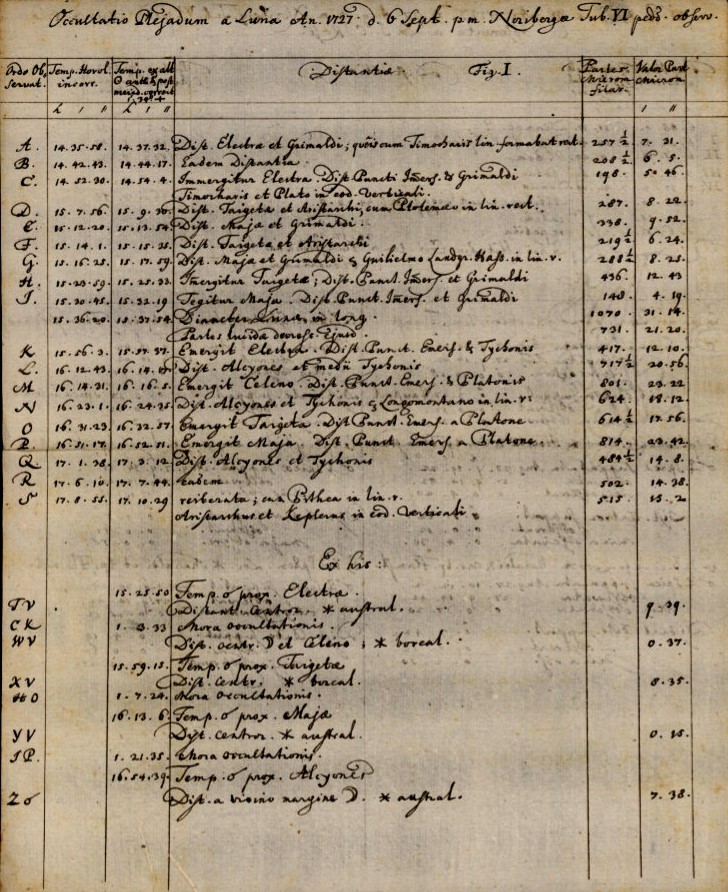 Occultatio Plejadum a Luna An. 1727 d. 6 Sept. p.m. Noribergæ Tub. VI ped. observ.
Ordo Observat. Temp. Horol. incorr. Temp. ex alt ☉ correct Distantiæ Fig. I. Partes Microm filar. Valor Part Micron
A. 14. 35. 58. 14. 37. 32. Dist. Electræ et Grimaldi; quibuscum Timocharis lin. formabat rect. 257 1/2 7. 31.
B. 14. 42. 43. 14. 44. 17. Eadem Distantia. 208 1/2 6. 5.
C. 14. 52. 30. 14. 54. 4. Immergitur Electra. Dist. Puncti Imers. & Grimaldi 198. 5. 46.
Timocharis et Plato in eod. Verticali.
D. 15. 7. 56. 15. 9. 30. Dist. Taigetæ et Aristarchi, cum Ptolemæo in lin. rect. 287. 8. 22.
E. 15. 12. 20. 15. 13. 54. Dist. Majæ et Grimaldi. 338. 9. 52.
F. 15. 14. 1. 15. 15. 25. Dist. Taigetæ et Aristarchi 219 1/2 6. 24.
G. 15. 16. 25. 15. 17. 59. Dist. Majæ et Grimaldi & Guilielmo Landgr. Hass. in lin. r. 288 1/2 8. 25.
H. 15. 23. 59. 15. 25. 33. Imergitur Taigetæ; Dist. Punct. Imers. et Grimaldi 436. 12. 43
I. 15. 30. 45. 15. 32. 19 Tegitur Maja. Dist. Punct. Imers. et Grimaldi 148. 4. 19.
15. 36. 20. 15. 37. 54. Diameter Lunæ in long. 1070. 31. 14.
Partes lucida Ejusd. 731. 21. 20.
K 15. 56. 3. 15. 57. 37. Emergit Electra. Dist. Punct. Emers. & Tychonis 417. 12. 10.
L. 16. 12. 43. 16. 14. Dist. Alcyones et medii Tychonis 717 1/2 20. 56.
M 16. 14. 31. 16. 16. 5. Emergit Celeno. Dist. Punct. Emers. & Platonis 801. 23. 22
N 16. 23. 1. 16. 24. 35. Dist. Alcyones et Tychonis & Longomontano in lin. r. 624. 18. 12.
O 16. 31. 23. 16. 32. 57. Emergit Taigeta. Dist. Punct. Emers. a Platone 614 1/2 17. 56.
P. 16. 51. 17. 16. 52. 51. Emergit Maja. Dist. Punct. Emers. a Platone. 814. 23. 42
Q 17. 1. 38. 17. 3. 12. Dist. Alcyones et Tychonis 484 1/2 14. 8.
R 17. 6. 10. 17. 7. 44. Eadem 502. 14. 38.
S 17. 8. 55. 17. 10. 29 reiterata; cum Pithea in lin. r. 515. 15. 2
Aristarchus et Keplerus in eod. Verticali
Ex his:
15. 25. 50 Temp. ☌ prox. Electræ
TV Distant. Centror. * austral. 9. 39.
CK 1. 3. 33 Mora occultationis.
WV Dist. centr. ☽ et Celeno; * boreal. 0. 37.
15. 59. 15. Temp. ☌ prox. Taigetæ
XV Dist. Centr. * boreal. 8. 35.
HO 1. 7. 24. Mora occultationis.
16. 13. 6. Temp. ☌ prox. Majæ
YV Dist. Centror. * austral. 0. 15.
IP. 1. 21. 35. Mora occultationis.
16. 54. 39. Temp. ☌ prox. Alcyones
Zσ Dist. a vicino margine ☽. * austral. 7. 38.